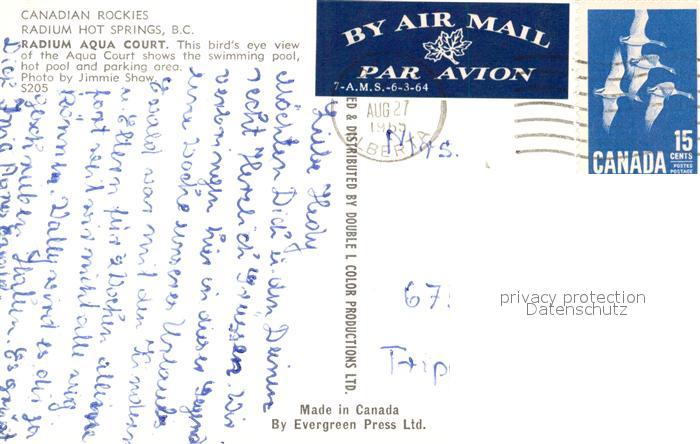 CANADIAN ROCKIES
RADIUM HOT SPRINGS, B.C.
RADIUM AQUA COURT. This bird's eye view
of the Aqua Court shows the swimming pool,
hot pool and parking area.
Photo by Jimmie Shaw
S205
BY AIR MAIL
PAR AVION
7-A.M.S.-6-3-64
AUG 27
ALBERTA
15
CENTS
POSTES
POSTAGE
CANADA
Liebe Hedy
Möchten Dich u. den Deinen
recht herzlich grüssen. Wir
verbringen hier in dieser Gegend
eine Woche unseres Urlaubs
Ewald war mit den Kindern
u. Eltern für 2 Wochen alleine
fort weil wir nicht alle weg
können. Wally wird es dir ja
ED & DISTRIBUTED BY DOUBLE L COLOR PRODUCTIONS LTD.
Mrs.
67
Trip
privacy protection
Datenschutz
Made in Canada
By Evergreen Press Ltd.